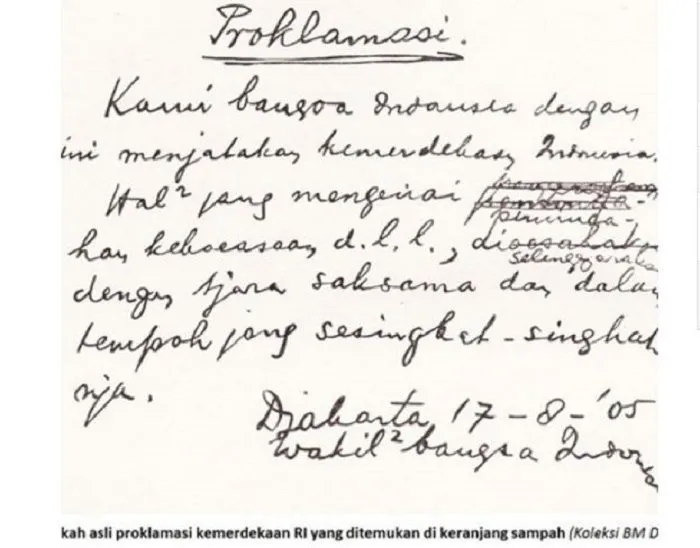 Proklamasi.
Kami bangsa Indonesia dengan
ini menjatakan kemerdekaan Indonesia.
Hal² jang mengenai
peminda-
han kekoeasaan, d.l.l., di
selenggaraka
dengan tjara saksama dan dala
tempoh jang sesingkat-singkat
nja.
Djakarta 17 - 8 - '05
Wakil² bangsa Indones
kah asli proklamasi kemerdekaan RI yang ditemukan di keranjang sampah (Koleksi BM D